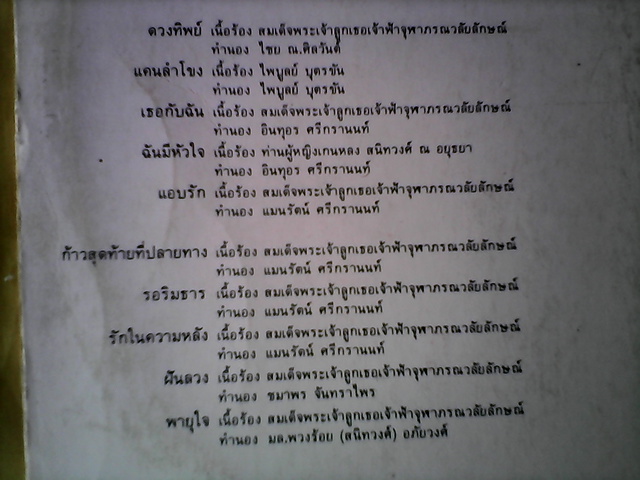 ดวงทิพย์ เนื้อร้อง สมเด็จพระเจ้าลูกเธอเจ้าฟ้าจุฬาภรณวลัยลักษณ์
ทำนอง ไชย ณ.ศิลวันต์
แคนลำโขง เนื้อร้อง ไพบูลย์ บุตรขัน
ทำนอง ไพบูลย์ บุตรขัน
เธอกับฉัน เนื้อร้อง สมเด็จพระเจ้าลูกเธอเจ้าฟ้าจุฬาภรณวลัยลักษณ์
ทำนอง อินทุอร ศรีกรานนท์
ฉันมีหัวใจ เนื้อร้อง ท่านผู้หญิงเกนหลง สนิทวงศ์ ณ อยุธยา
ทำนอง อินทุอร ศรีกรานนท์
แอบรัก เนื้อร้อง สมเด็จพระเจ้าลูกเธอเจ้าฟ้าจุฬาภรณวลัยลักษณ์
ทำนอง แมนรัตน์ ศรีกรานนท์
ก้าวสุดท้ายที่ปลายทาง เนื้อร้อง สมเด็จพระเจ้าลูกเธอเจ้าฟ้าจุฬาภรณวลัยลักษณ์
ทำนอง แมนรัตน์ ศรีกรานนท์
รอริมธาร เนื้อร้อง สมเด็จพระเจ้าลูกเธอเจ้าฟ้าจุฬาภรณวลัยลักษณ์
ทำนอง แมนรัตน์ ศรีกรานนท์
รักในความหลัง เนื้อร้อง สมเด็จพระเจ้าลูกเธอเจ้าฟ้าจุฬาภรณวลัยลักษณ์
ทำนอง แมนรัตน์ ศรีกรานนท์
ฝันลวง เนื้อร้อง สมเด็จพระเจ้าลูกเธอเจ้าฟ้าจุฬาภรณวลัยลักษณ์
ทำนอง ชมาพร จันทราไพร
พายุใจ เนื้อร้อง สมเด็จพระเจ้าลูกเธอเจ้าฟ้าจุฬาภรณวลัยลักษณ์
ทำนอง มล.พวงร้อย (สนิทวงศ์) อภัยวงศ์